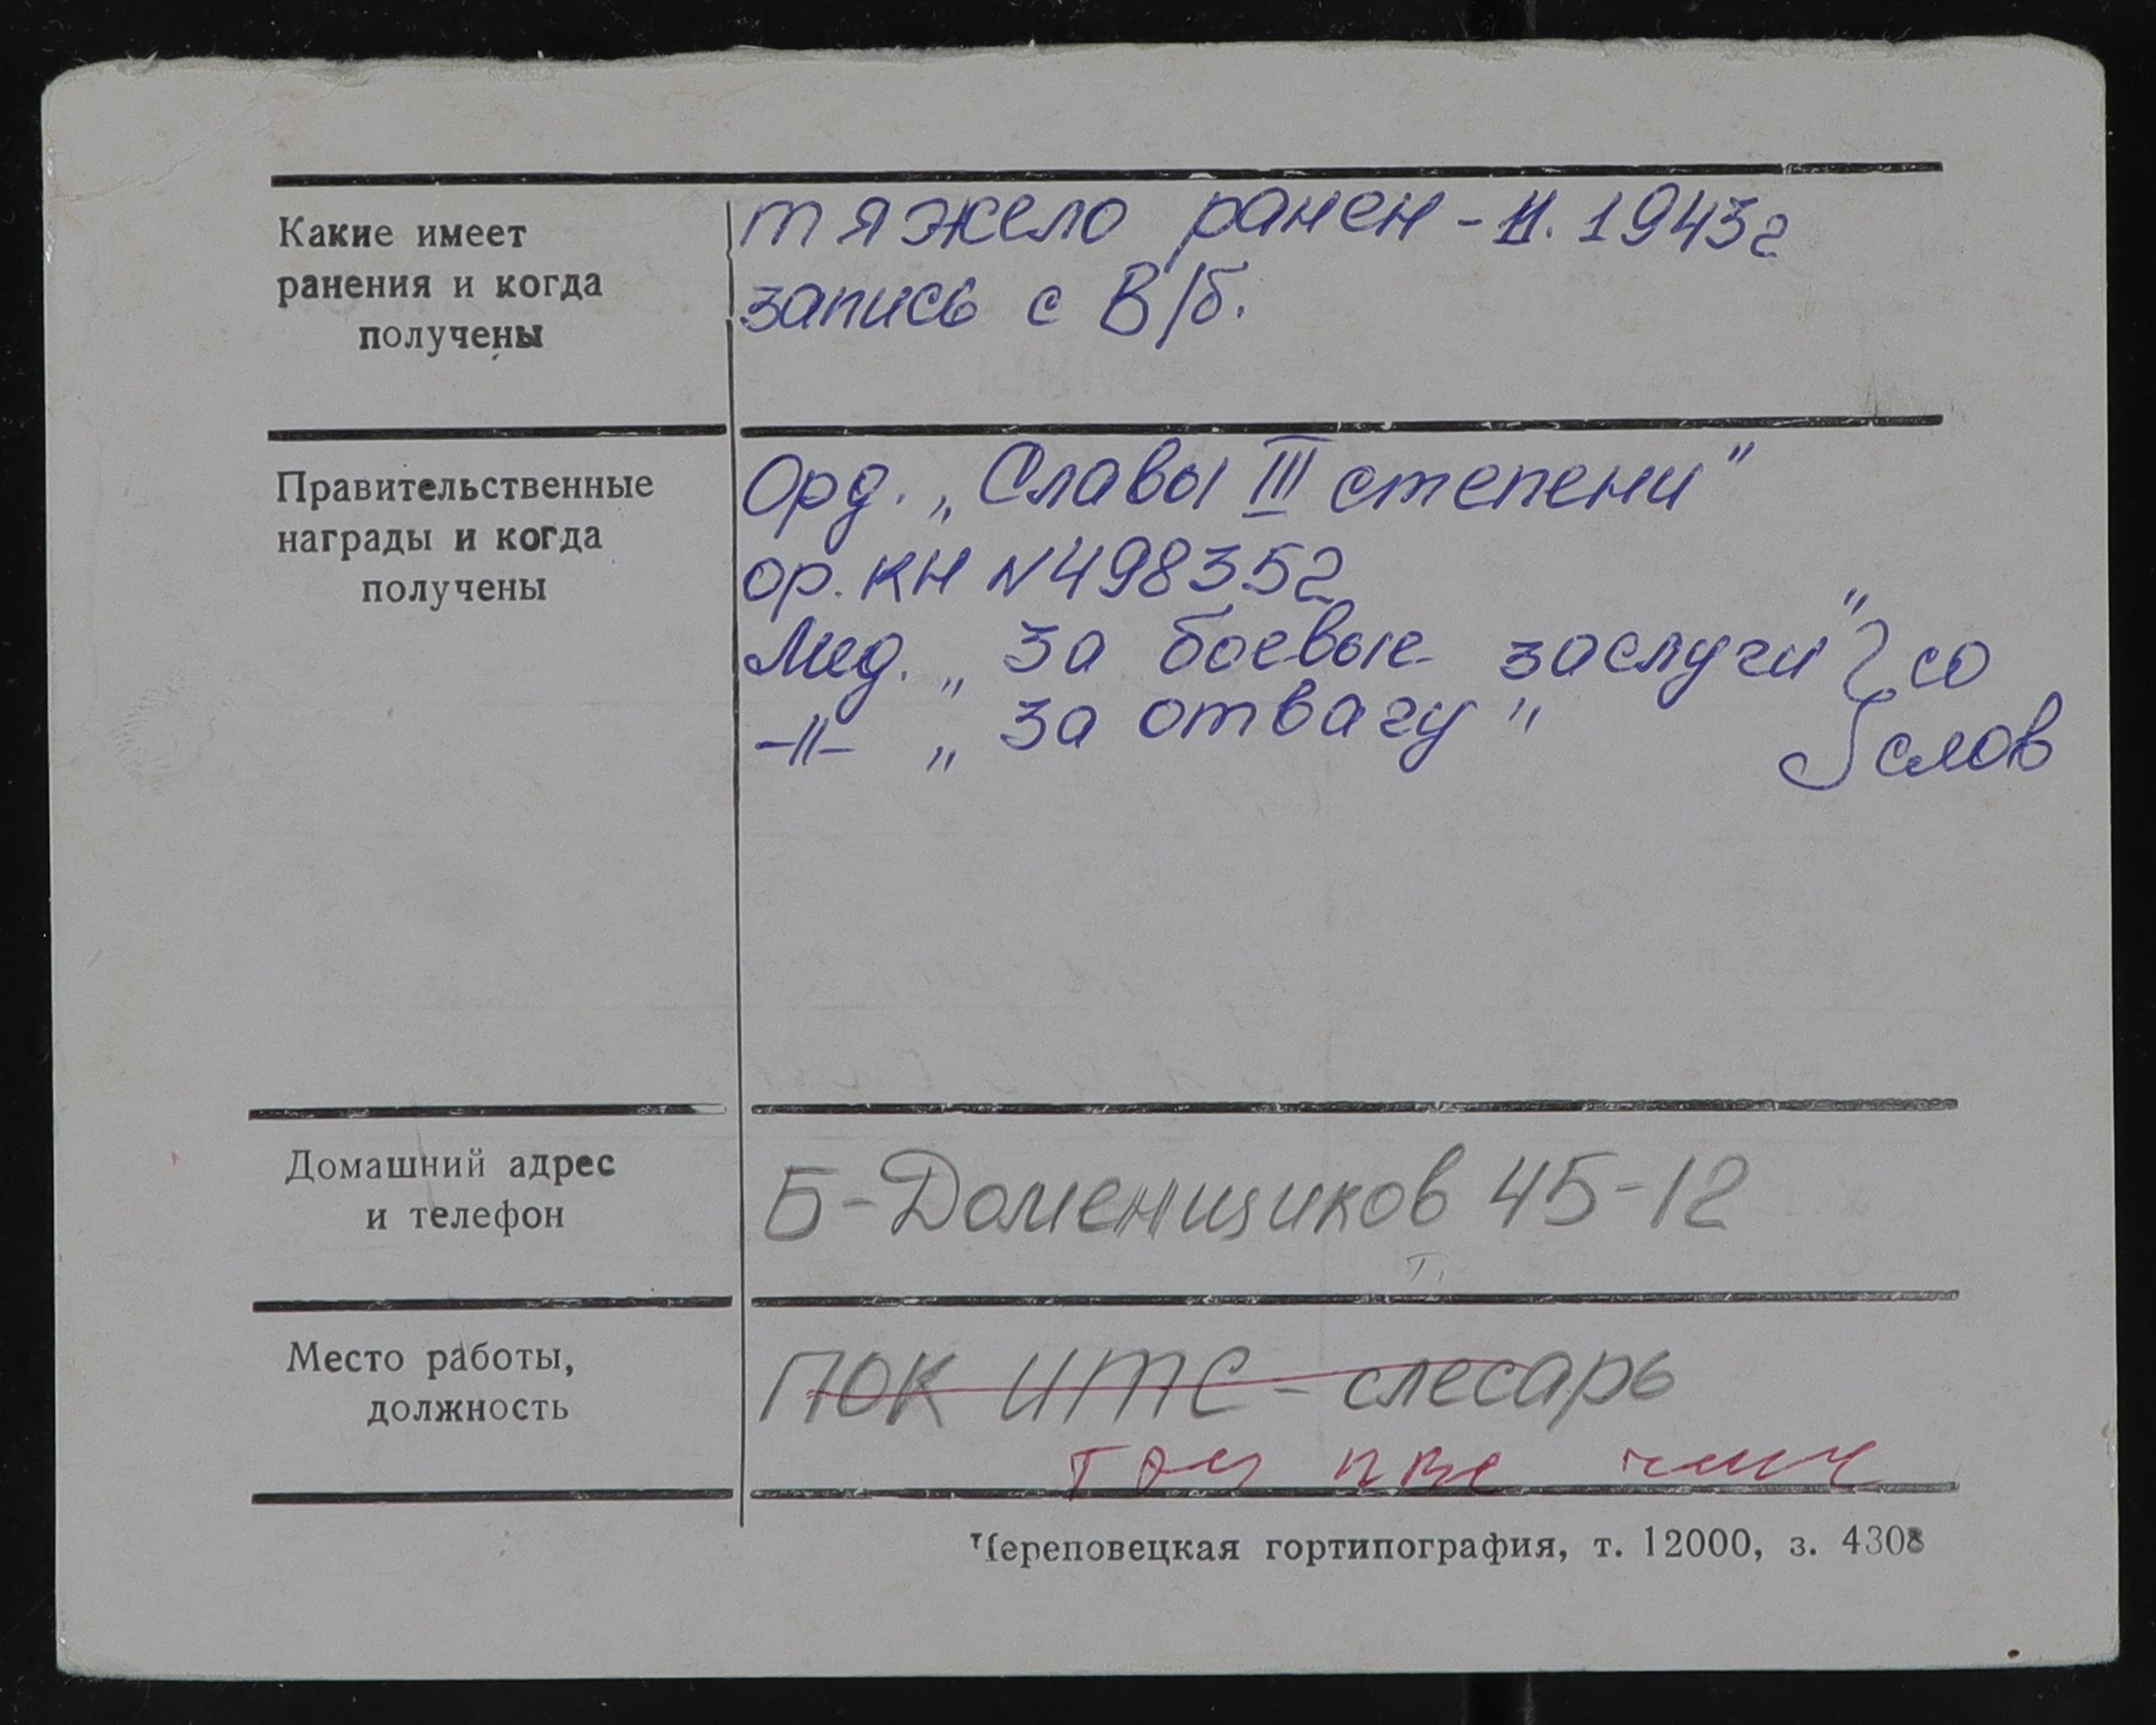 Какие имеет
ранения и когда
получены
тяжело ранен - II. 1943г
запись с В/б.
Правительственные
награды и когда
получены
Орд. „Славы III степени"
ор. кн N498352
Мед. „За боевые заслуги" } со
-"- „За отвагу" } слов
Домашний адрес
и телефон
Б-Доменщиков 45-12
Место работы,
должность
ПОК ИТС - слесарь
Череповецкая гортипография, т. 12000, з. 4308